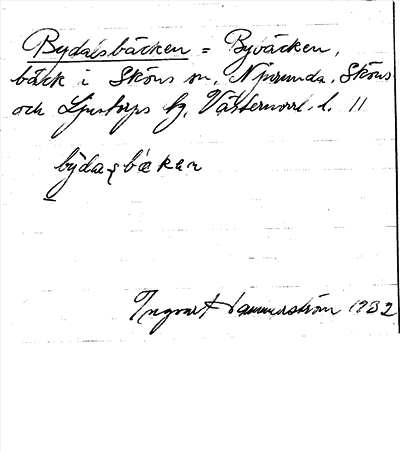 Bydalsbäcken = Bybäcken,
bäck i Sköns sn, Njurunda, Sköns
och Ljustorps tg, Västernorrl. l. 11
býda bäken
Ingvar Hammarström 1932